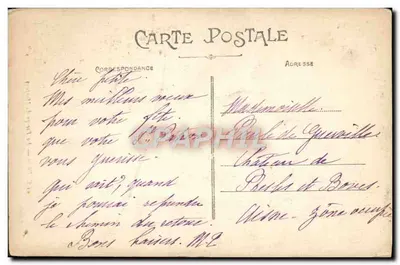 CARTE POSTALE
CORRESPONDENCE
ADRESSE
Chère petite
Mes meilleurs voeux
pour votre fête
que votre St
vous guérisse.
qui sait, quand
je pourrai reprendre
le chemin du retour
Bons baisers. M. P.
Mademoiselle
Paule de
Château de
Presles et Boves
Aisne - Zône occupée